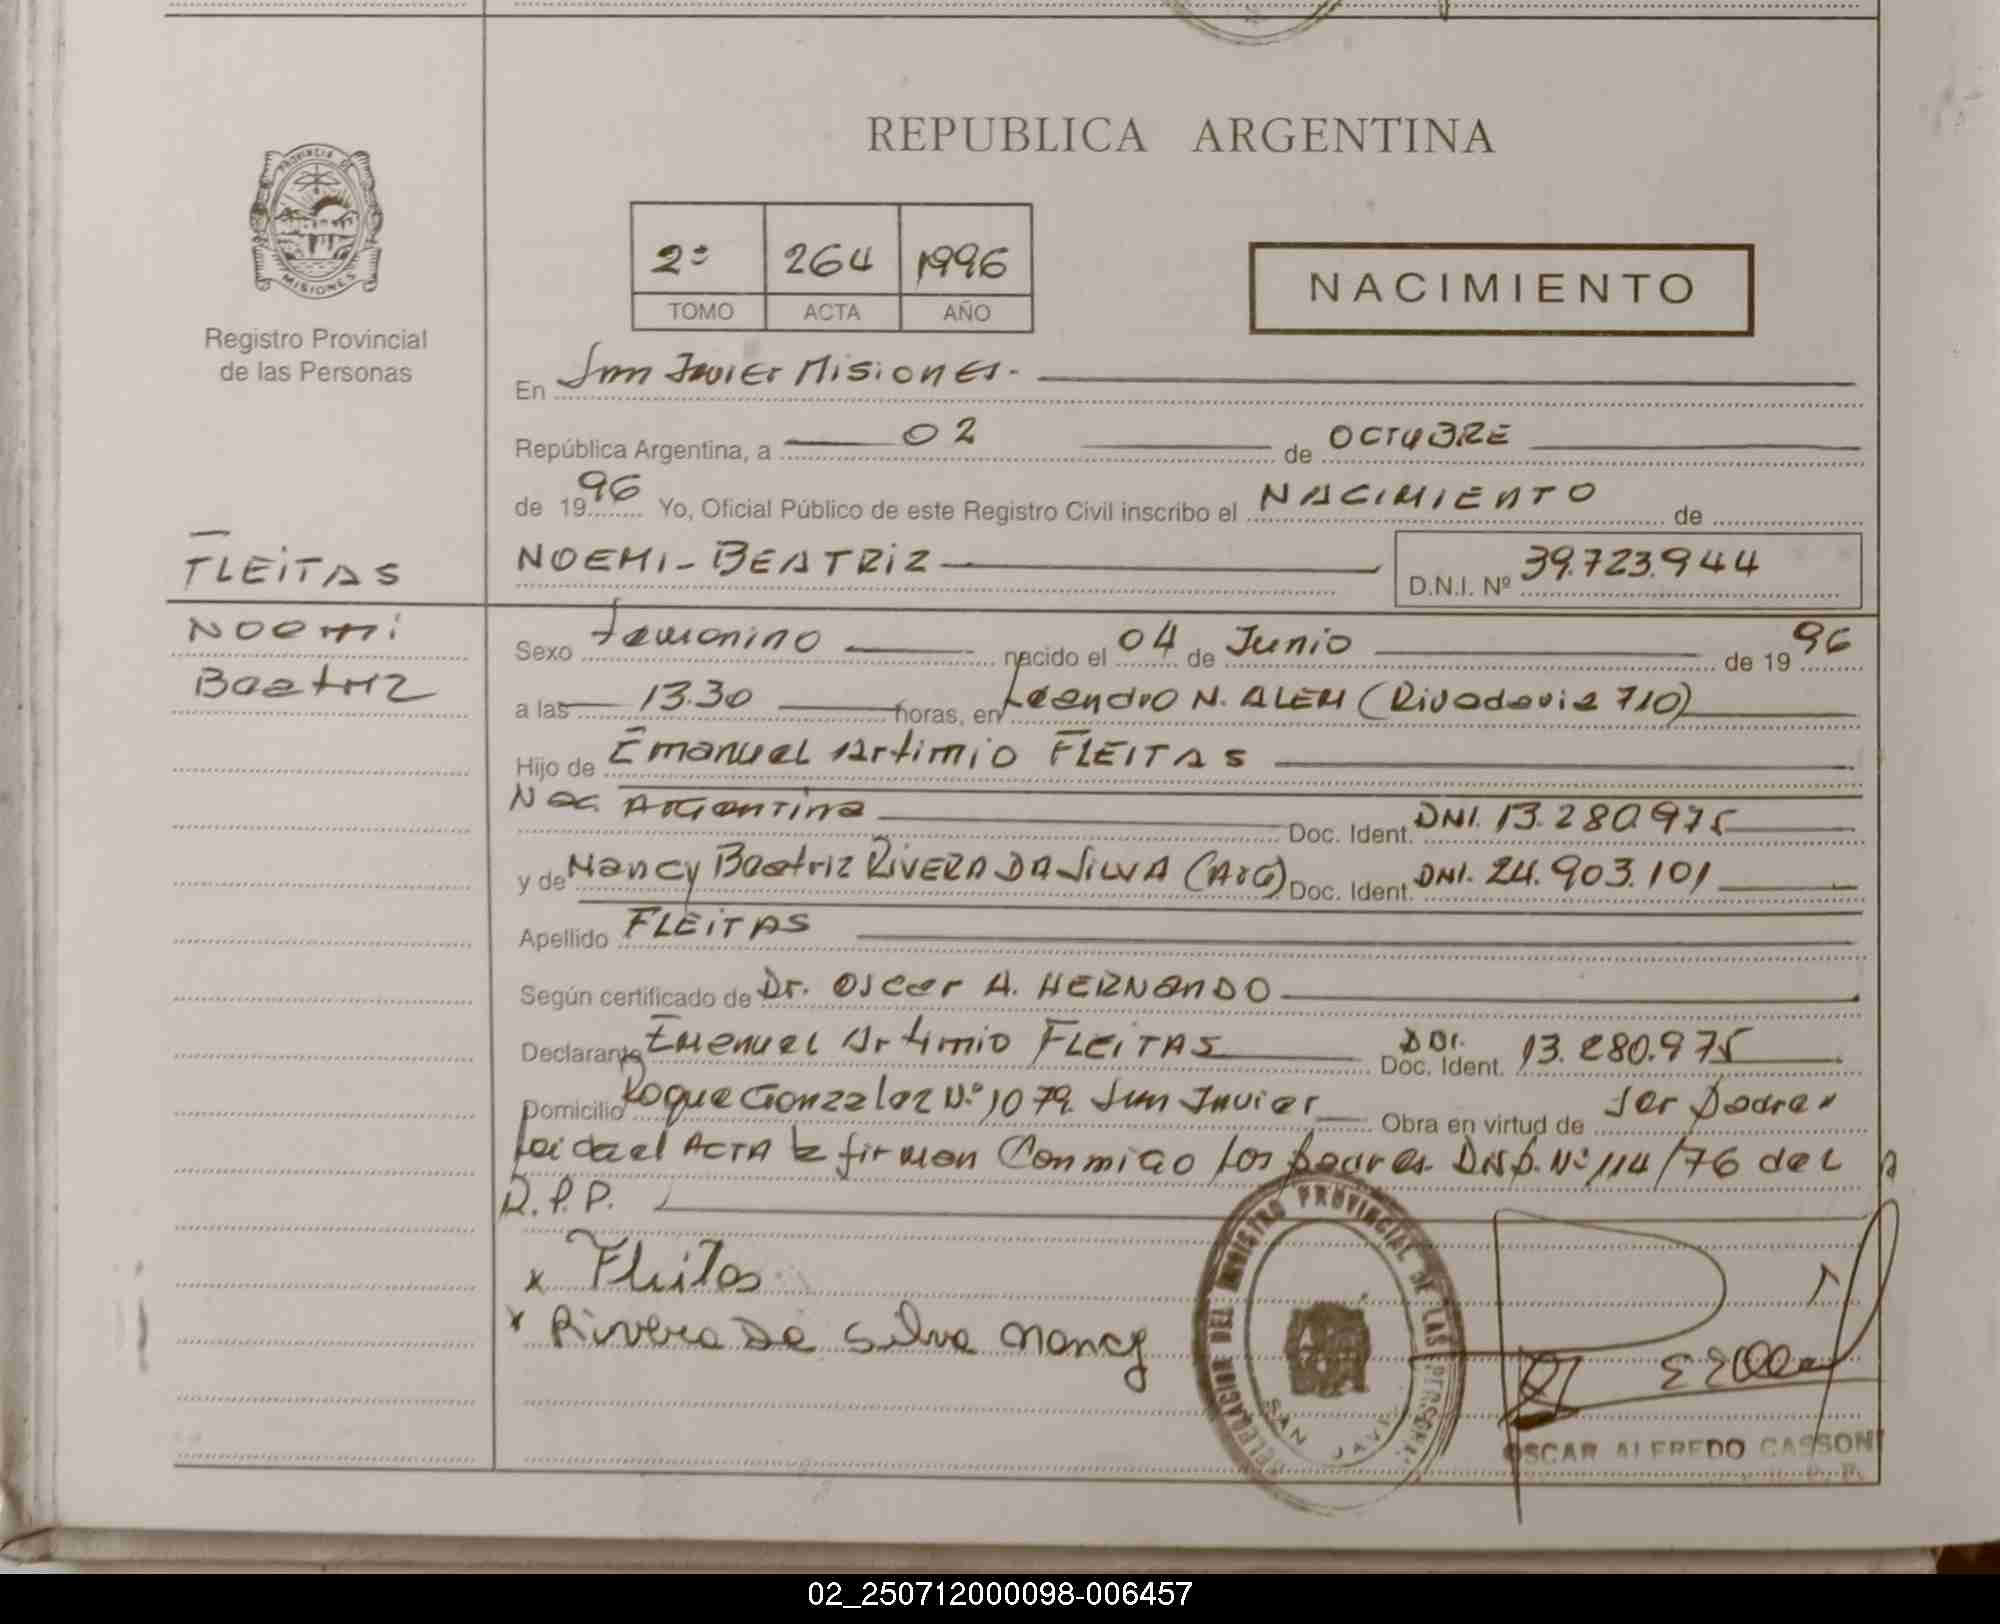 REPUBLICA ARGENTINA
PROVINCIA DE
MISIONES
Registro Provincial
de las Personas
2º 264 1996
TOMO ACTA AÑO
NACIMIENTO
En San Javier Misiones.
República Argentina, a 02 de OCTUBRE
de 1996 Yo, Oficial Público de este Registro Civil inscribo el NACIMIENTO de
FLEITAS
NOEMI-BEATRIZ D.N.I. Nº 39.723.944
Noemi
Beatriz
Sexo femenino nacido el 04 de Junio de 1996
a las 13.30 horas, en Leandro N. ALEM (Rivadavia 710)
Hijo de Emanuel Artimio FLEITAS
Nac. Argentina Doc. Ident. DNI. 13.280.975
y de Nancy Beatriz RIVERA DA SILVA (Arg) Doc. Ident. DNI. 24.903.101
Apellido FLEITAS
Según certificado de Dr. Oscar A. HERNANDO
Declarante Emanuel Artimio FLEITAS Doc. Ident. DNI. 13.280.975
Domicilio Roque Gonzalez Nº 1079. San Javier Obra en virtud de ser padre.
Leida el ACTA la firman Conmigo los padres. Disp. Nº 114/76 del
R.P.P.
x Fleitas
x Rivera Da Silva Nancy
DELEGACION DEL REGISTRO PROVINCIAL DE LAS PERSONAS
SAN JAVIER
OSCAR ALFREDO CASSONI
02_250712000098-006457